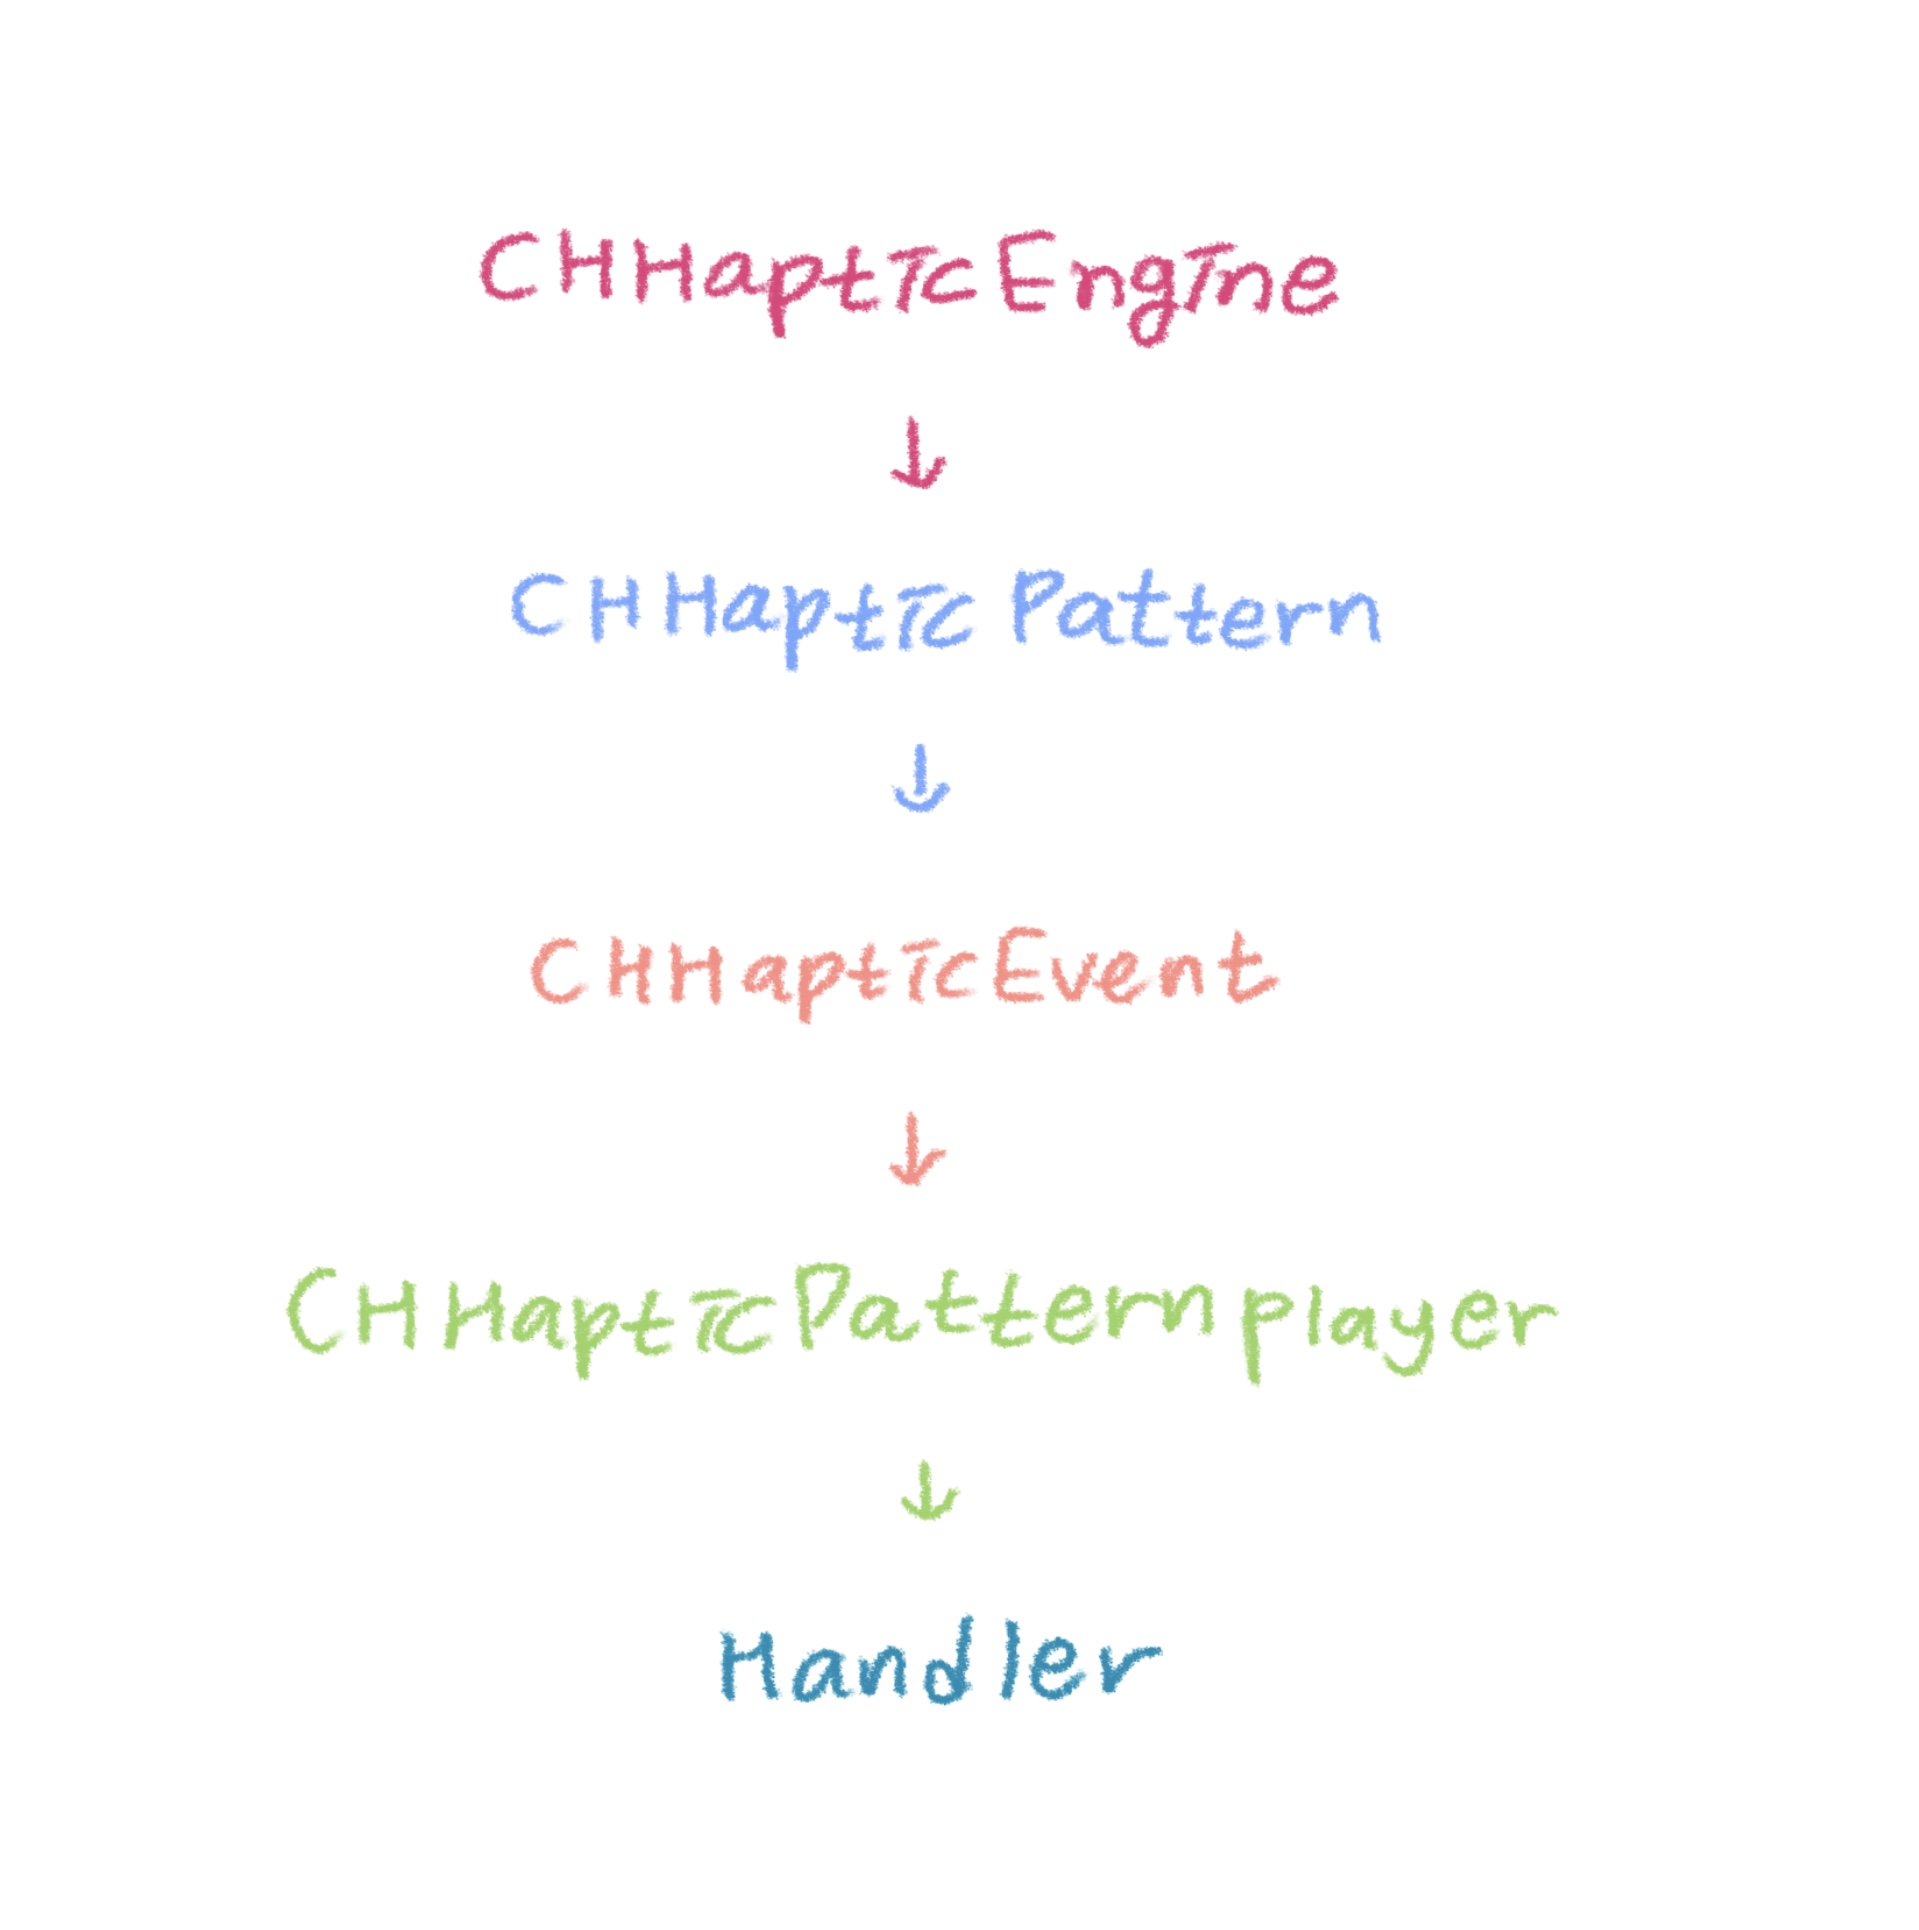 CHHapticEngine
↓
CHHaptic Pattern
↓
CHHapticEvent
↓
CHHapticPatternplayer
↓
Handler